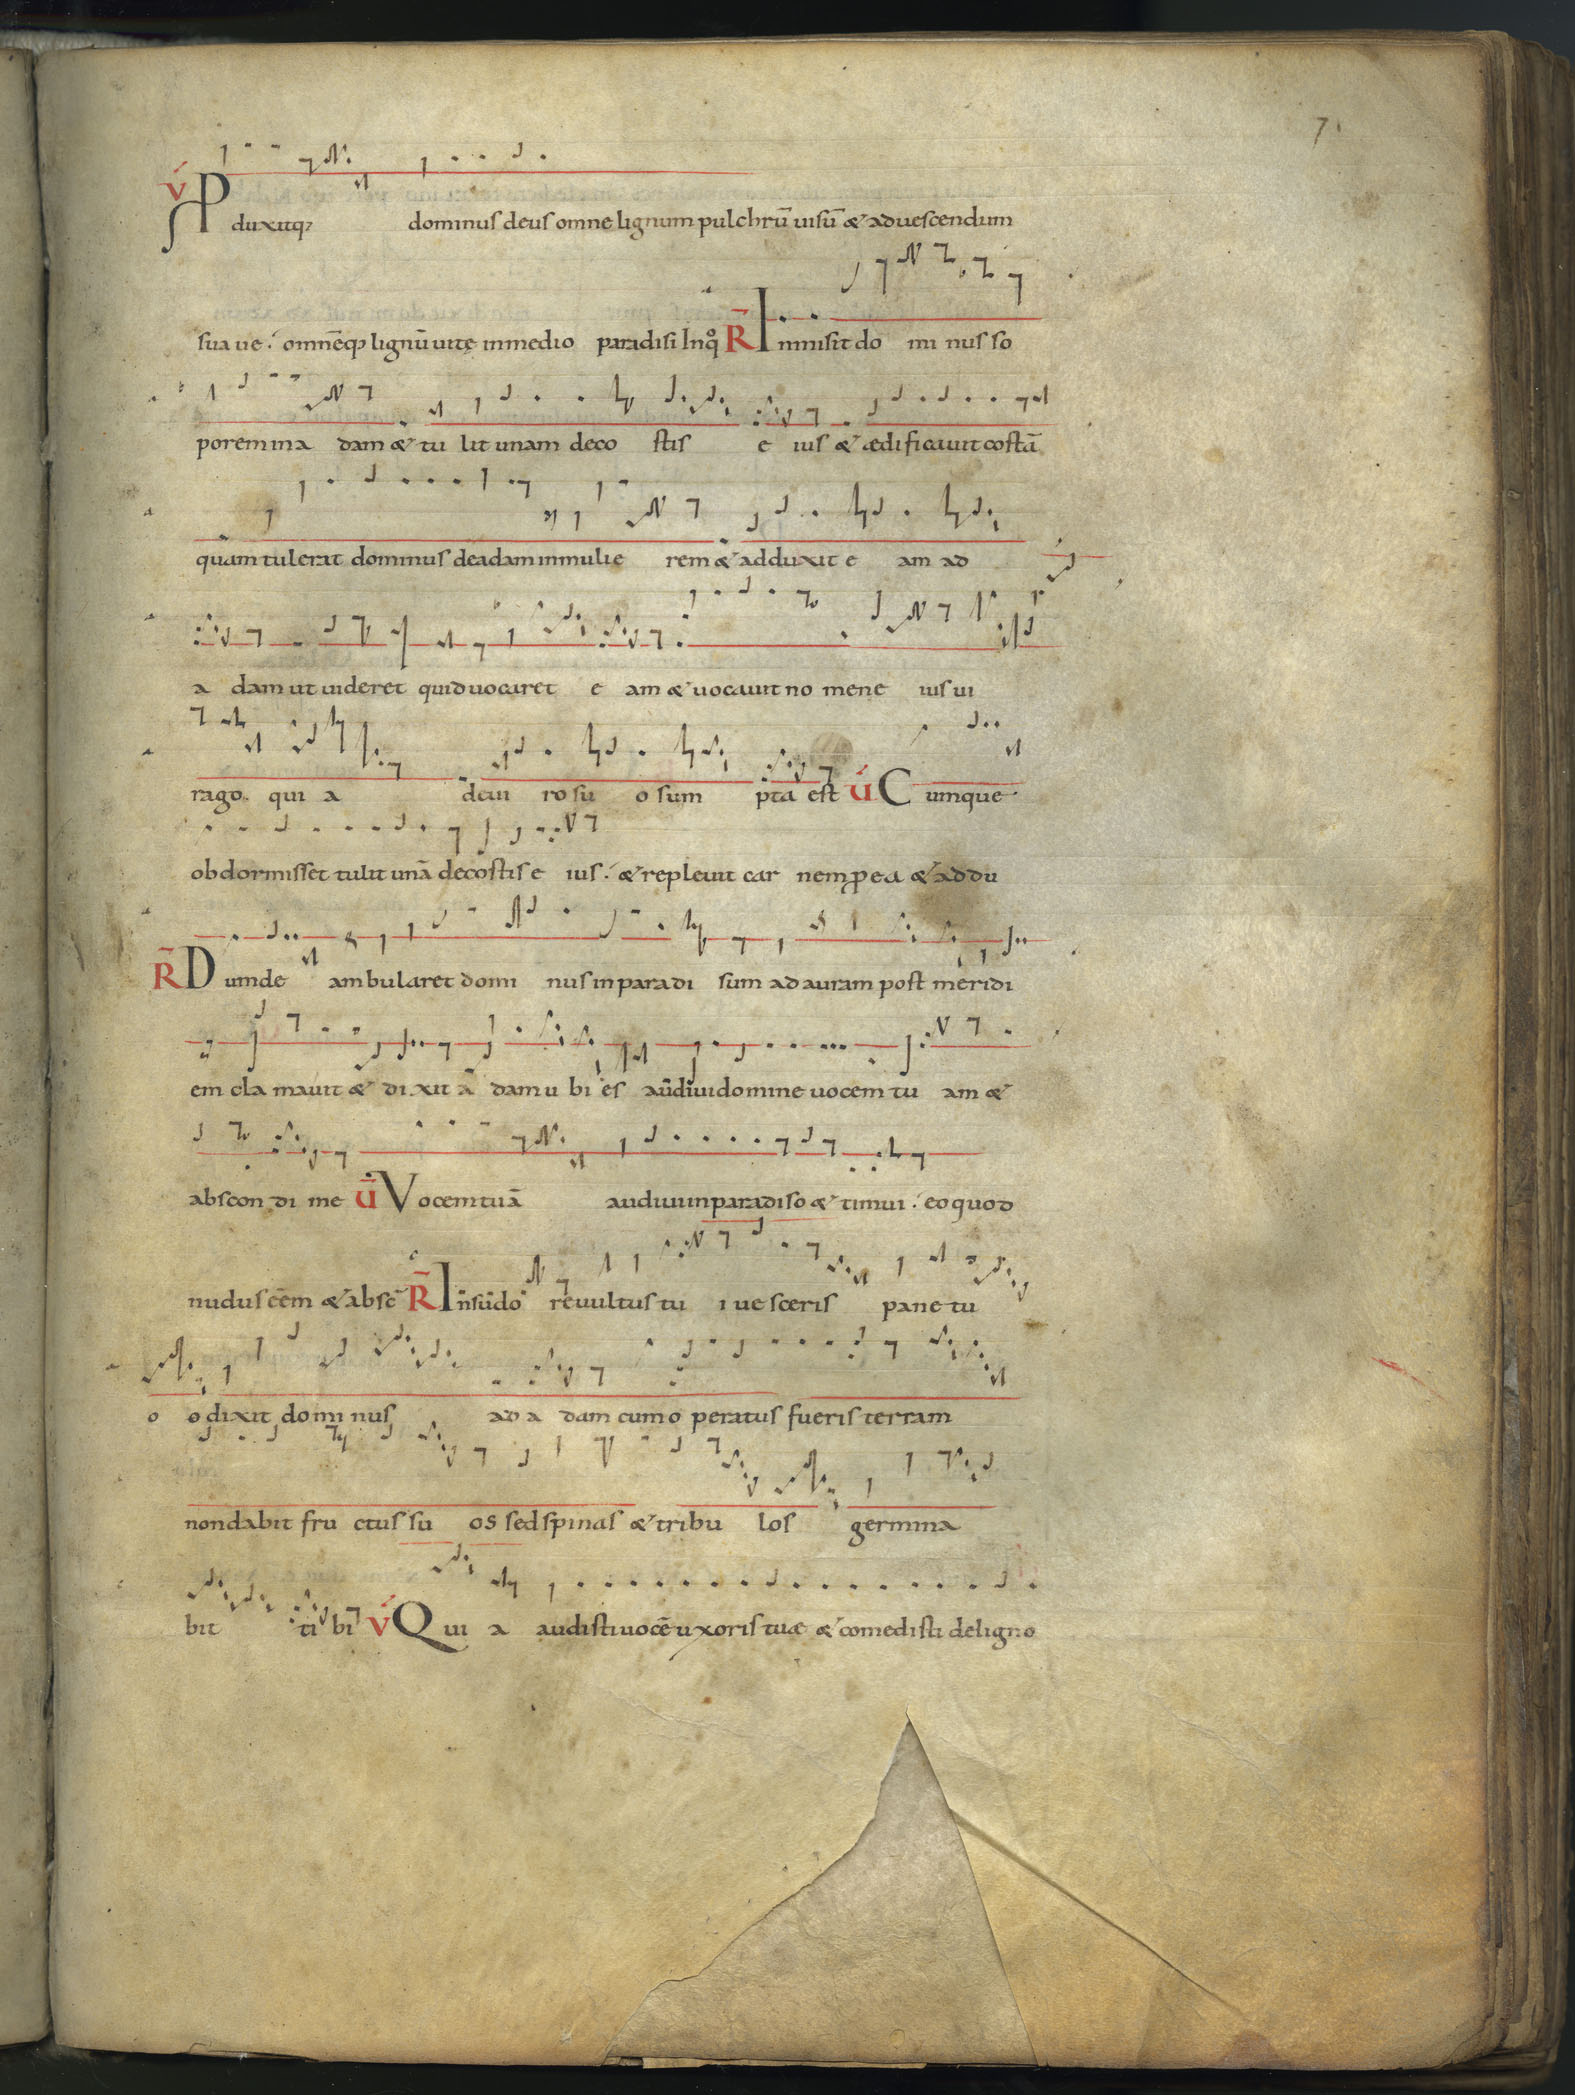 71
v́ Produxitq; dominus deus omne lignum pulchrū uisū & aduescendum
suaue. omnēq; lignū uitę inmedio paradisi Inq° R̄ Inmisit do mi nus so
porem ina dam & tu lit unam deco stis e ius & ædificauit costā
quam tulerat dominus deadam inmulie rem & adduxit e am ad
a dam ut uideret quid uocaret e am & uocauit no men e ius ui
rago. qui a deui ro su o sum pta est ú Cumque
obdormisset tulit unā decostis e ius. & repleuit car nem p ea & addu
R̄ Dum de ambularet domi nus inparadi sum ad auram post meridi
em cla mauit & di xit a dam u bi es audiui domine uocem tu am &
abscon di me ú Vocem tuā audiui inparadiso & timui. eo quod
nudus eēm & absc̄ R̄ In sudo re uultus tu i ue sceris pane tu
o o dixit domi nus ad a dam cum o peratus fueris terram
non dabit fru ctus su os sed spinas & tribu los germina
bit ti bi v́ Qui a audisti uocē uxoris tuæ & comedisti deligno